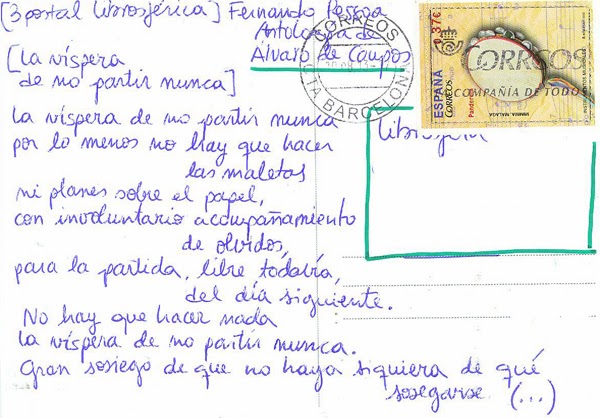 [3 postal Librosférica] Fernando Pessoa
Antología de
Alvaro de Campos
[La víspera
de no partir nunca]
La víspera de no partir nunca
por lo menos no hay que hacer
las maletas
ni planes sobre el papel,
con involuntario acompañamiento
de olvidos,
para la partida, libre todavía,
del día siguiente.
No hay que hacer nada
la víspera de no partir nunca.
Gran sosiego de que no haya siquiera de qué
sosegarse (...)
CORREOS
CTA BARCELONA
ESPAÑA
0,37€
CORREOS
CORREOS
COMPAÑÍA DE TODOS
Pandero